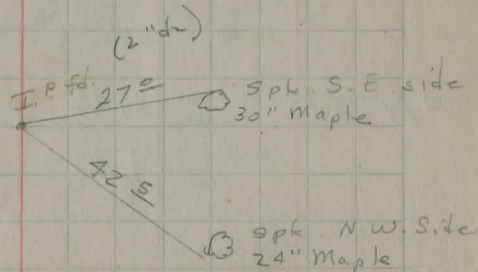 (2"dr)
I.P. fd.
27 0
Spk. S.E. side
30" Maple
42 5
Spk N W. Side
24" Maple